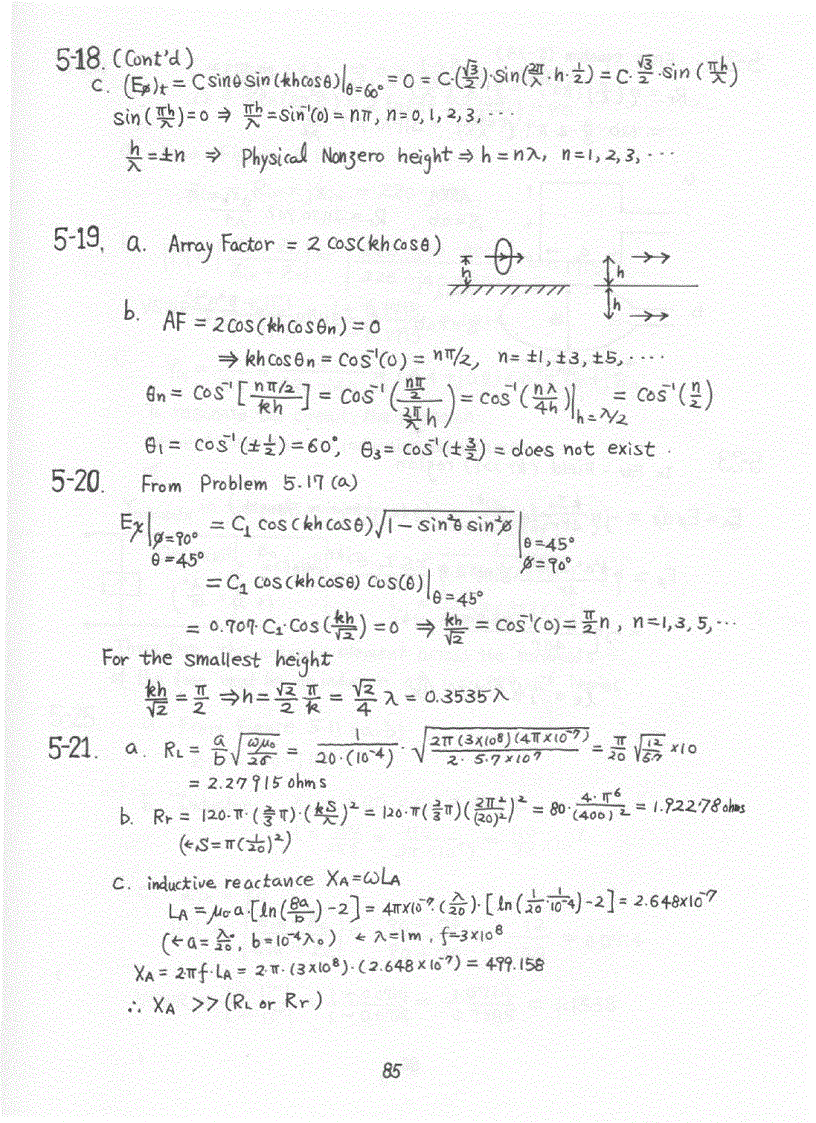 5-18. (Cont'd)
c. (E_ø)_t = C sinθ sin(kh cosθ)|_{θ=60°} = 0 = C·(√3/2)·sin(2π/λ·h·1/2) = C·√3/2·sin(πh/λ)
sin(πh/λ) = 0 ⇒ πh/λ = sin⁻¹(0) = nπ, n = 0, 1, 2, 3, ···
h/λ = ±n ⇒ Physical Nonzero height ⇒ h = nλ, n = 1, 2, 3, ···
5-19. a. Array Factor = 2 cos(kh cosθ)
h
h
h
b. AF = 2 cos(kh cosθn) = 0
⇒ kh cosθn = cos⁻¹(0) = nπ/2, n = ±1, ±3, ±5, ····
θn = cos⁻¹[nπ/2 / kh] = cos⁻¹(nπ/2 / 2π/λ h) = cos⁻¹(nλ/4h)|_{h=λ/2} = cos⁻¹(n/2)
θ1 = cos⁻¹(±1/2) = 60°, θ3 = cos⁻¹(±3/2) = does not exist.
5-20. From Problem 5.17 (a)
E_χ|_{ø=90° θ=45°} = C1 cos(kh cosθ)√(1 − sin²θ sin²ø)|_{θ=45° ø=90°}
= C1 cos(kh cosθ) cos(θ)|_{θ=45°}
= 0.707·C1·cos(kh/√2) = 0 ⇒ kh/√2 = cos⁻¹(0) = π/2 n, n = 1, 3, 5, ···
For the smallest height
kh/√2 = π/2 ⇒ h = √2/2 π/k = √2/4 λ = 0.3535λ
5-21. a. R_L = a/b √(ωμ₀/2σ) = 1/20·(10⁻⁴) · √(2π(3×10⁸)(4π×10⁻⁷)/2·5.7×10⁷) = π/20 √(12/5.7) ×10
= 2.27915 ohms
b. Rr = 120·π·(2/3 π)·(kS/λ)² = 120·π(2/3 π)(2π²/(20)²)² = 80·4·π⁶/(400)² = 1.92278 ohms
(← S = π(1/20)²)
c. inductive reactance X_A = ωL_A
L_A = μ₀a·[ln(8a/b) − 2] = 4π×10⁻⁷·(λ/20)·[ln(1/20·1/10⁻⁴) − 2] = 2.648×10⁻⁷
(← a = λ₀/20, b = 10⁻⁴λ₀) ← λ = 1m, f = 3×10⁸
X_A = 2πf·L_A = 2·π·(3×10⁸)·(2.648×10⁻⁷) = 499.158
∴ X_A >> (R_L or Rr)
85